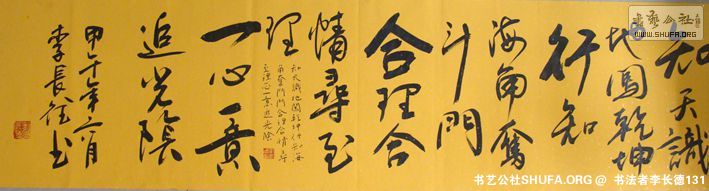 知天識
地闖乾坤
行知
海角奮
斗門
合理合
情尋至
理
一心一意
追光陰
甲午年六月
李長德书
知天識地闖乾坤行知海
角奮斗門合理合情尋
至理一心一意追光陰
书艺公社
WWW.SHUFA.ORG
书艺公社SHUFA.ORG @ 书法者李长德131